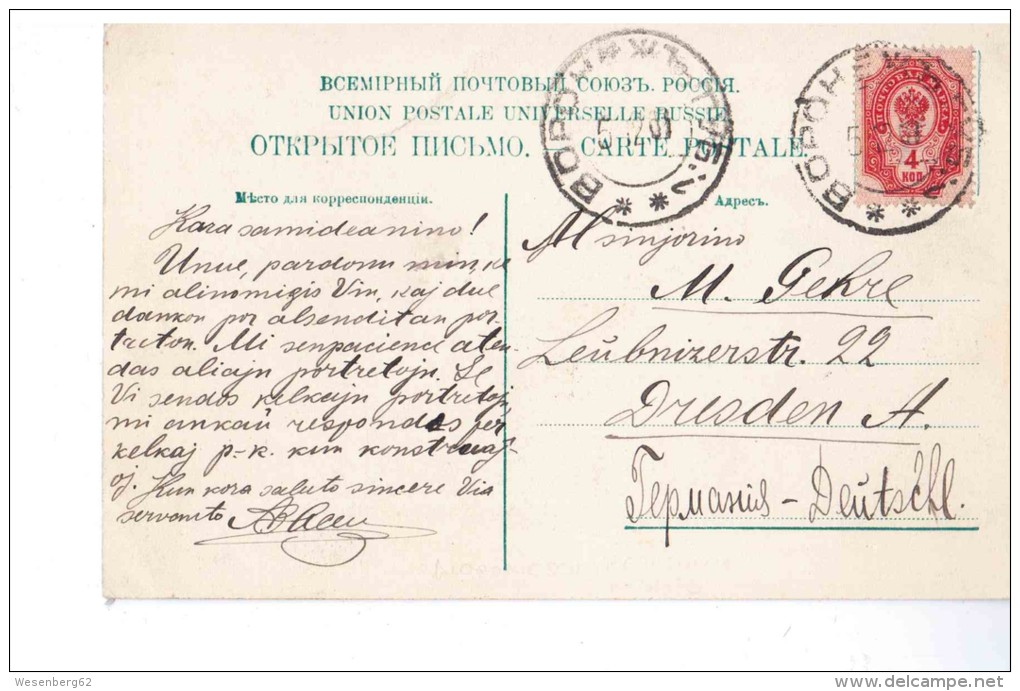 ВСЕМІРНЫЙ ПОЧТОВЫЙ СОЮЗЪ. РОССІЯ.
UNION POSTALE UNIVERSELLE RUSSIE
ОТКРЫТОЕ ПИСЬМО. — CARTE POSTALE.
Мѣсто для корреспонденціи.
Адресъ.
ВОРОНЕЖЪ
ВОРОНЕЖЪ
ПОЧТОВАЯ МАРКА
4
КОП
Kara samideanino!
Unue, pardonu min, ke
mi alinomigis Vin, kaj due
dankon por alsenditan por-
treton. Mi senpacience aten-
das aliajn portretojn. Se
Vi sendos kelkajn portretojn,
mi ankaŭ respondos per
kelkaj p-k. kun konstruaj-
oj. Kun kora saluto sincere Via
servanto
Al sinjorino
M. Gehre
Leubnizerstr. 22
Dresden A.
Германія - Deutschl.
Wesenberg62
delcampe.net